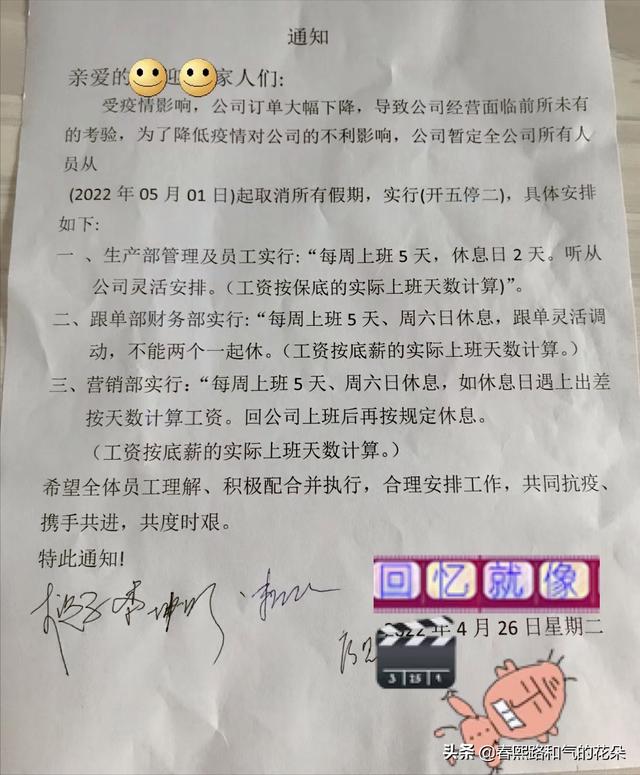 通知
亲爱的迎家人们:
受疫情影响，公司订单大幅下降，导致公司经营面临前所未有
的考验，为了降低疫情对公司的不利影响，公司暂定全公司所有人
员从
(2022 年 05 月 01 日)起取消所有假期，实行(开五停二)，具体安排
如下:
一 、生产部管理及员工实行:“每周上班 5 天，休息日 2 天。听从
公司灵活安排。（工资按保底的实际上班天数计算)”。
二、跟单部财务部实行:“每周上班 5 天、周六日休息，跟单灵活调
动，不能两个一起休。（工资按底薪的实际上班天数计算。）
三、营销部实行:“每周上班 5 天、周六日休息，如休息日遇上出差
按天数计算工资。回公司上班后再按规定休息。
（工资按底薪的实际上班天数计算。）
希望全体员工理解、积极配合并执行，合理安排工作，共同抗疫、
携手共进，共度时艰。
特此通知!
回忆就像
2022 年 4 月 26 日星期二
头条 @春熙路和气的花朵